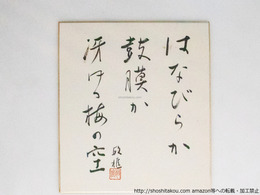 はなびらか
鼓膜か
冴ゆる梅の空
http://shoshitakou.com amazon等への転載・加工禁止